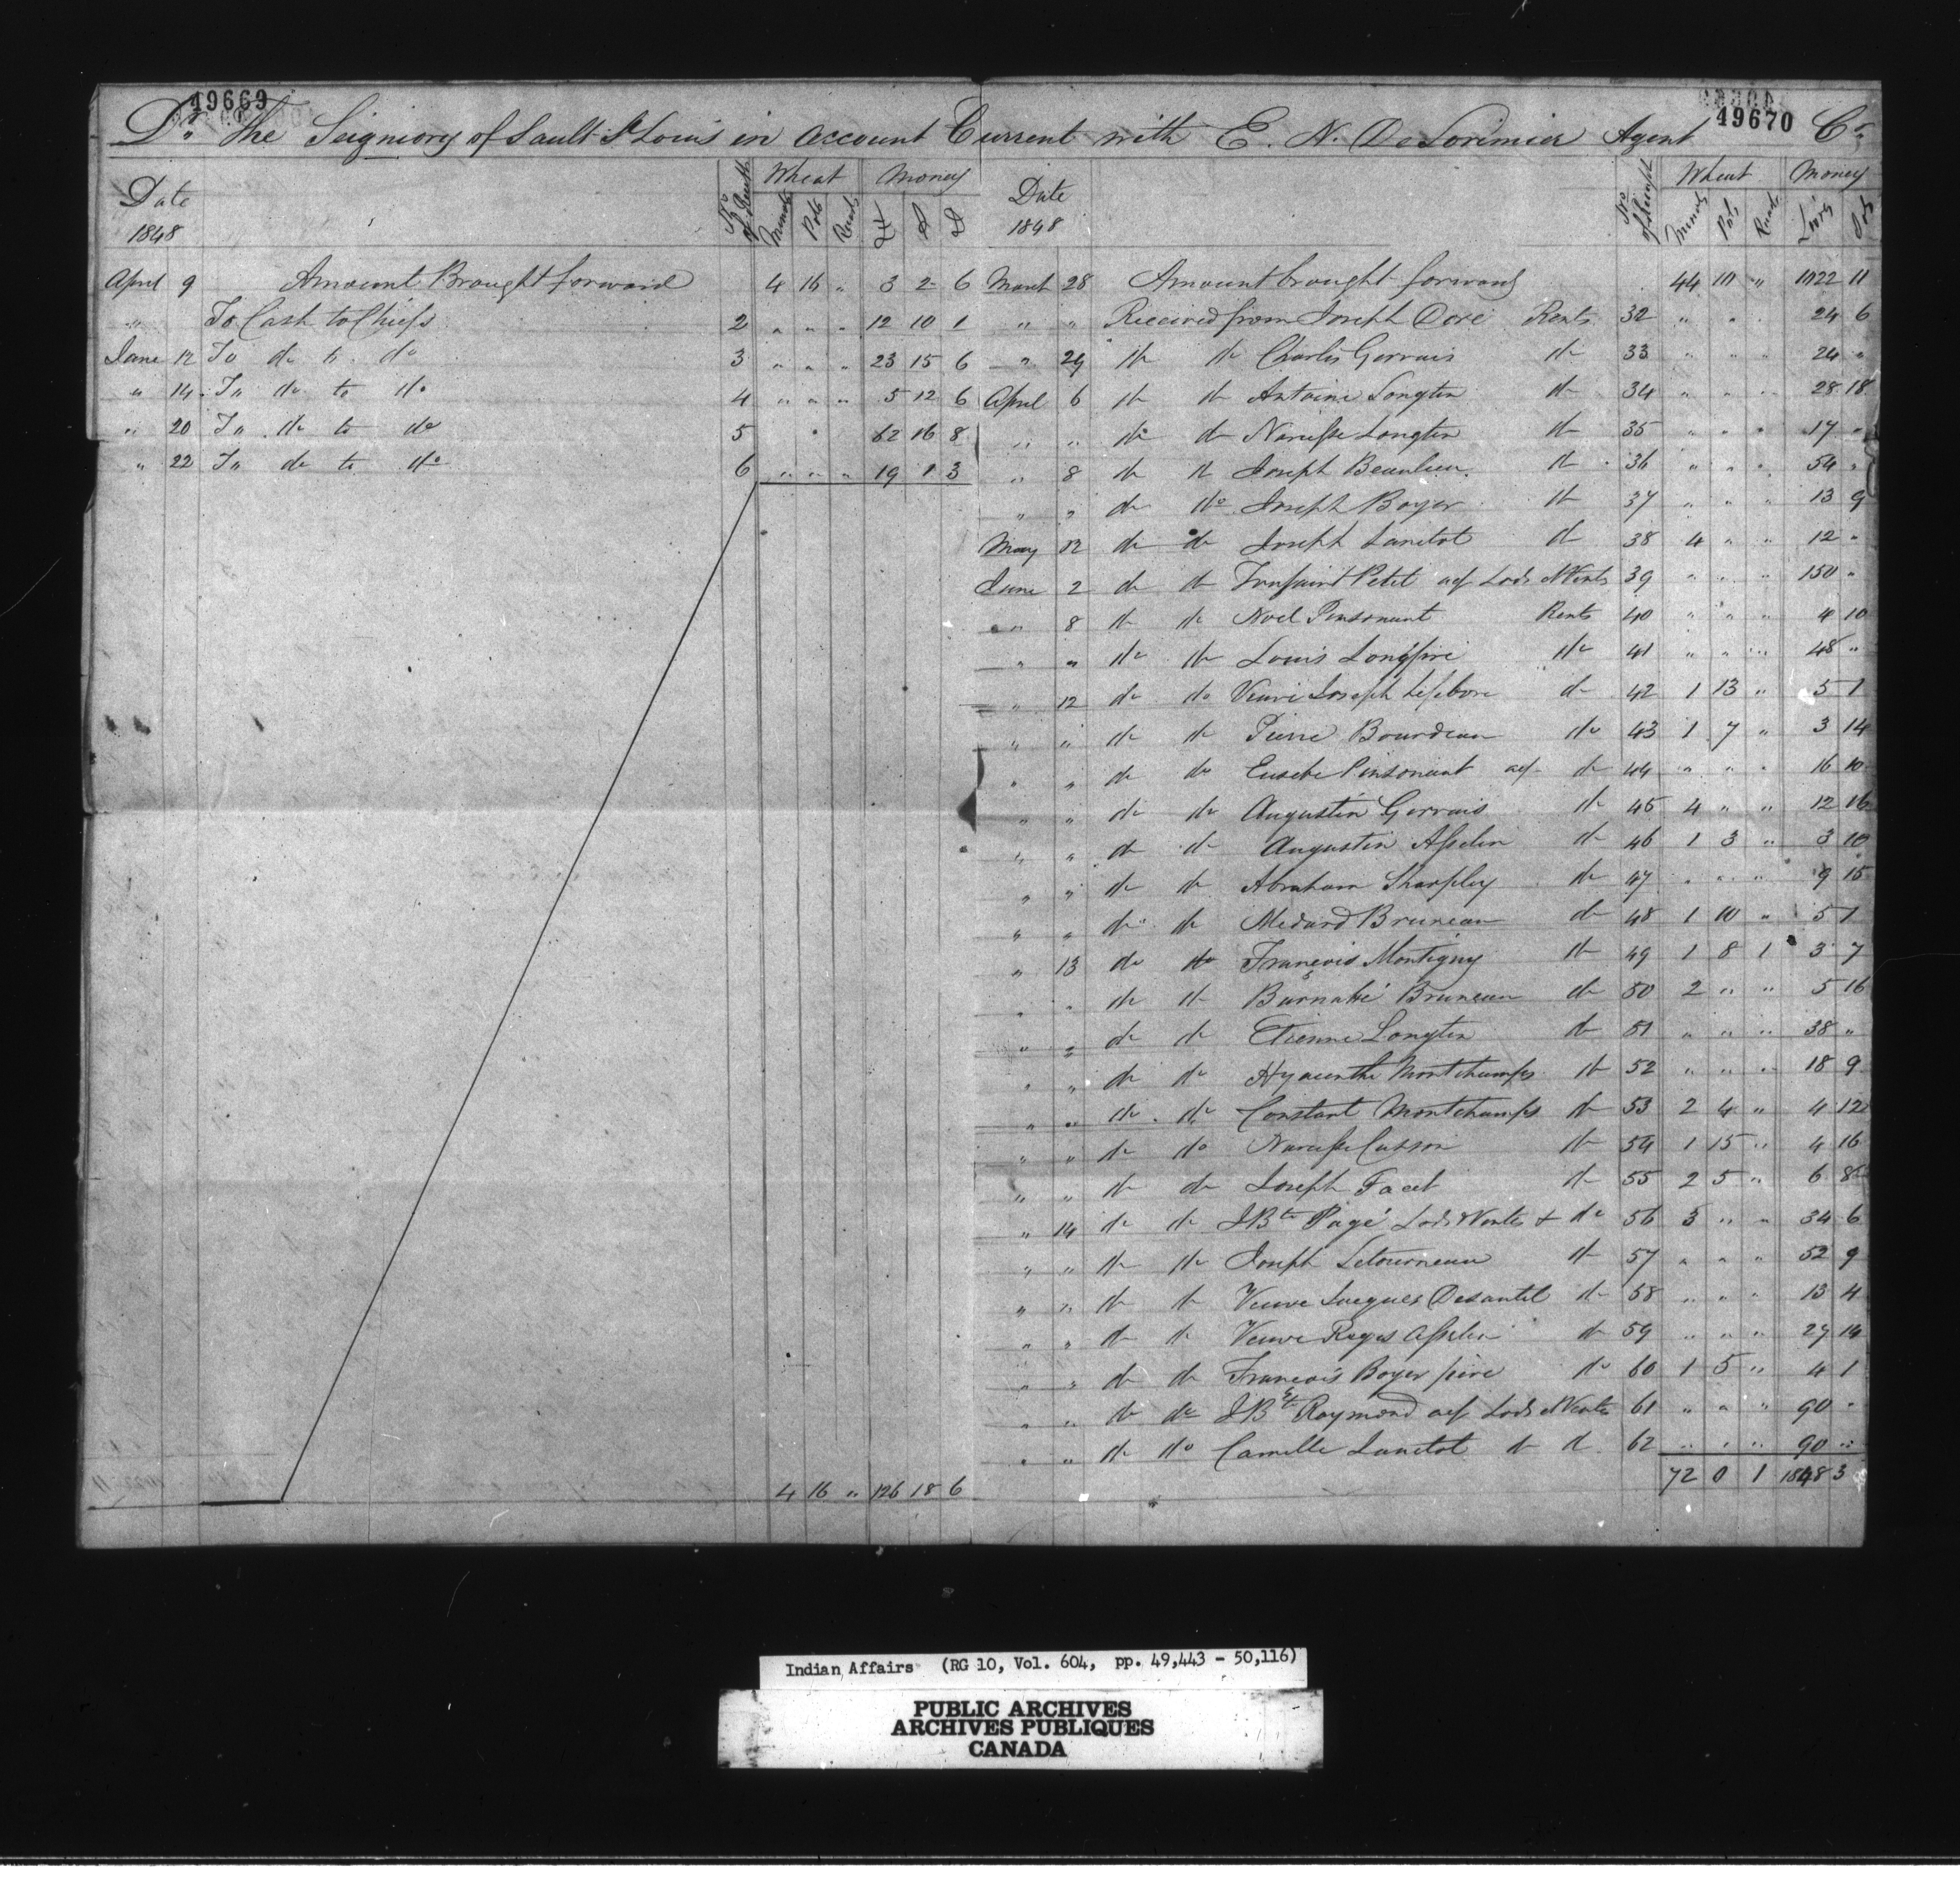 49669
49670
Dr. The Seigniory of Sault St Louis in account Current with E. N. De Lorimier Agent Cr.
Date 1848 No of Receipt Wheat Minots Pots Quarts Money £ S D
April 9 Amount Brought forward 4 16 " 3 2 6
" To Cash to Chiefs 2 " " " 12 10 1
June 12 To do to do 3 " " " 23 15 6
" 14 To do to do 4 " " " 5 12 6
" 20 To do to do 5 62 16 8
" 22 To do to do 6 " " " 19 1 3
4 16 " 126 18 6
Date 1848 No of Receipt Wheat Minots Pots Quarts Money Livres Sols
March 28 Amount brought forward 44 10 " 1022 11
" " Received from Joseph Doré Rents 32 " " 24 6
" 29 do do Charles Gervais do 33 " " " 24 "
April 6 do do Antoine Longtin do 34 " " " 28 18
" " do do Narcisse Longtin do 35 " " " 17 "
" 8 do do Joseph Beaulieu do 36 " " " 54 "
" " do do Joseph Boyer do 37 " " " 13 9
May 12 do do Joseph Lanctot do 38 4 " " 12 "
June 2 do do Toussaint Petit acp Lods et Vents 39 " " " 150 "
" 8 do do Noel Pinsonaut Rents 40 " " " 4 10
" " do do Louis Longpré do 41 " " " 48 "
" 12 do do Veuve Joseph Lefebvre do 42 1 13 " 5 1
" " do do Pierre Bourdeau do 43 1 7 " 3 14
" " do do Eusebe Pinsonaut acp do 44 " " " 16 10
" " do do Augustin Gervais do 45 4 " " 12 16
" " do do Augustin Asselin do 46 1 3 " 3 10
" " do do Abraham Sharpley do 47 " " " 9 15
" " do do Medard Bruneau do 48 1 10 " 5 1
" 13 do do François Montigny do 49 1 8 1 3 7
" " do do Barnabé Bruneau do 50 2 " " 5 16
" " do do Etienne Longtin do 51 " " " 38 "
" " do do Hyacinthe Montchamps do 52 " " " 18 9
" " do do Constant Montchamps do 53 2 4 " 4 12
" " do do Narcisse Cusson do 54 1 15 " 4 16
" " do do Joseph do 55 2 5 " 6 8
" 14 do do JBte Pagé Lods et Ventes + do 56 3 " " 34 6
" " do do Joseph Letourneau do 57 " " " 52 9
" " do do Veuve Jacques Desautel do 58 " " " 13 4
" " do do Veuve Regis Asselin do 59 " " " 27 14
" " do do François Boyer père do 60 1 5 " 4 1
" " do do JBte Raymond acp Lods et Ventes 61 " " " 90 "
" " do do Camille Lanctot do do 62 " " " 90 "
72 0 1 1848 3
Indian Affairs (RG 10, Vol. 604, pp. 49,443 - 50,116)
PUBLIC ARCHIVES
ARCHIVES PUBLIQUES
CANADA